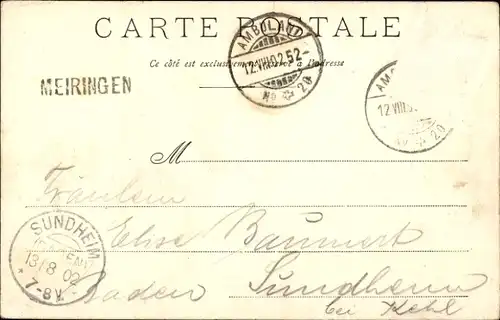 CARTE POSTALE
Ce côté est exclusivement réservé à l'adresse
AMBULANT
12.VIII.02.52-
No 20
MEIRINGEN
AMB
12 VIII.
No 20
M
Fräulein
Elise Baumert
Baden Sundheim
bei Kehl
SUNDHEIM
(BADEN)
13/8 02
* 7-8V.